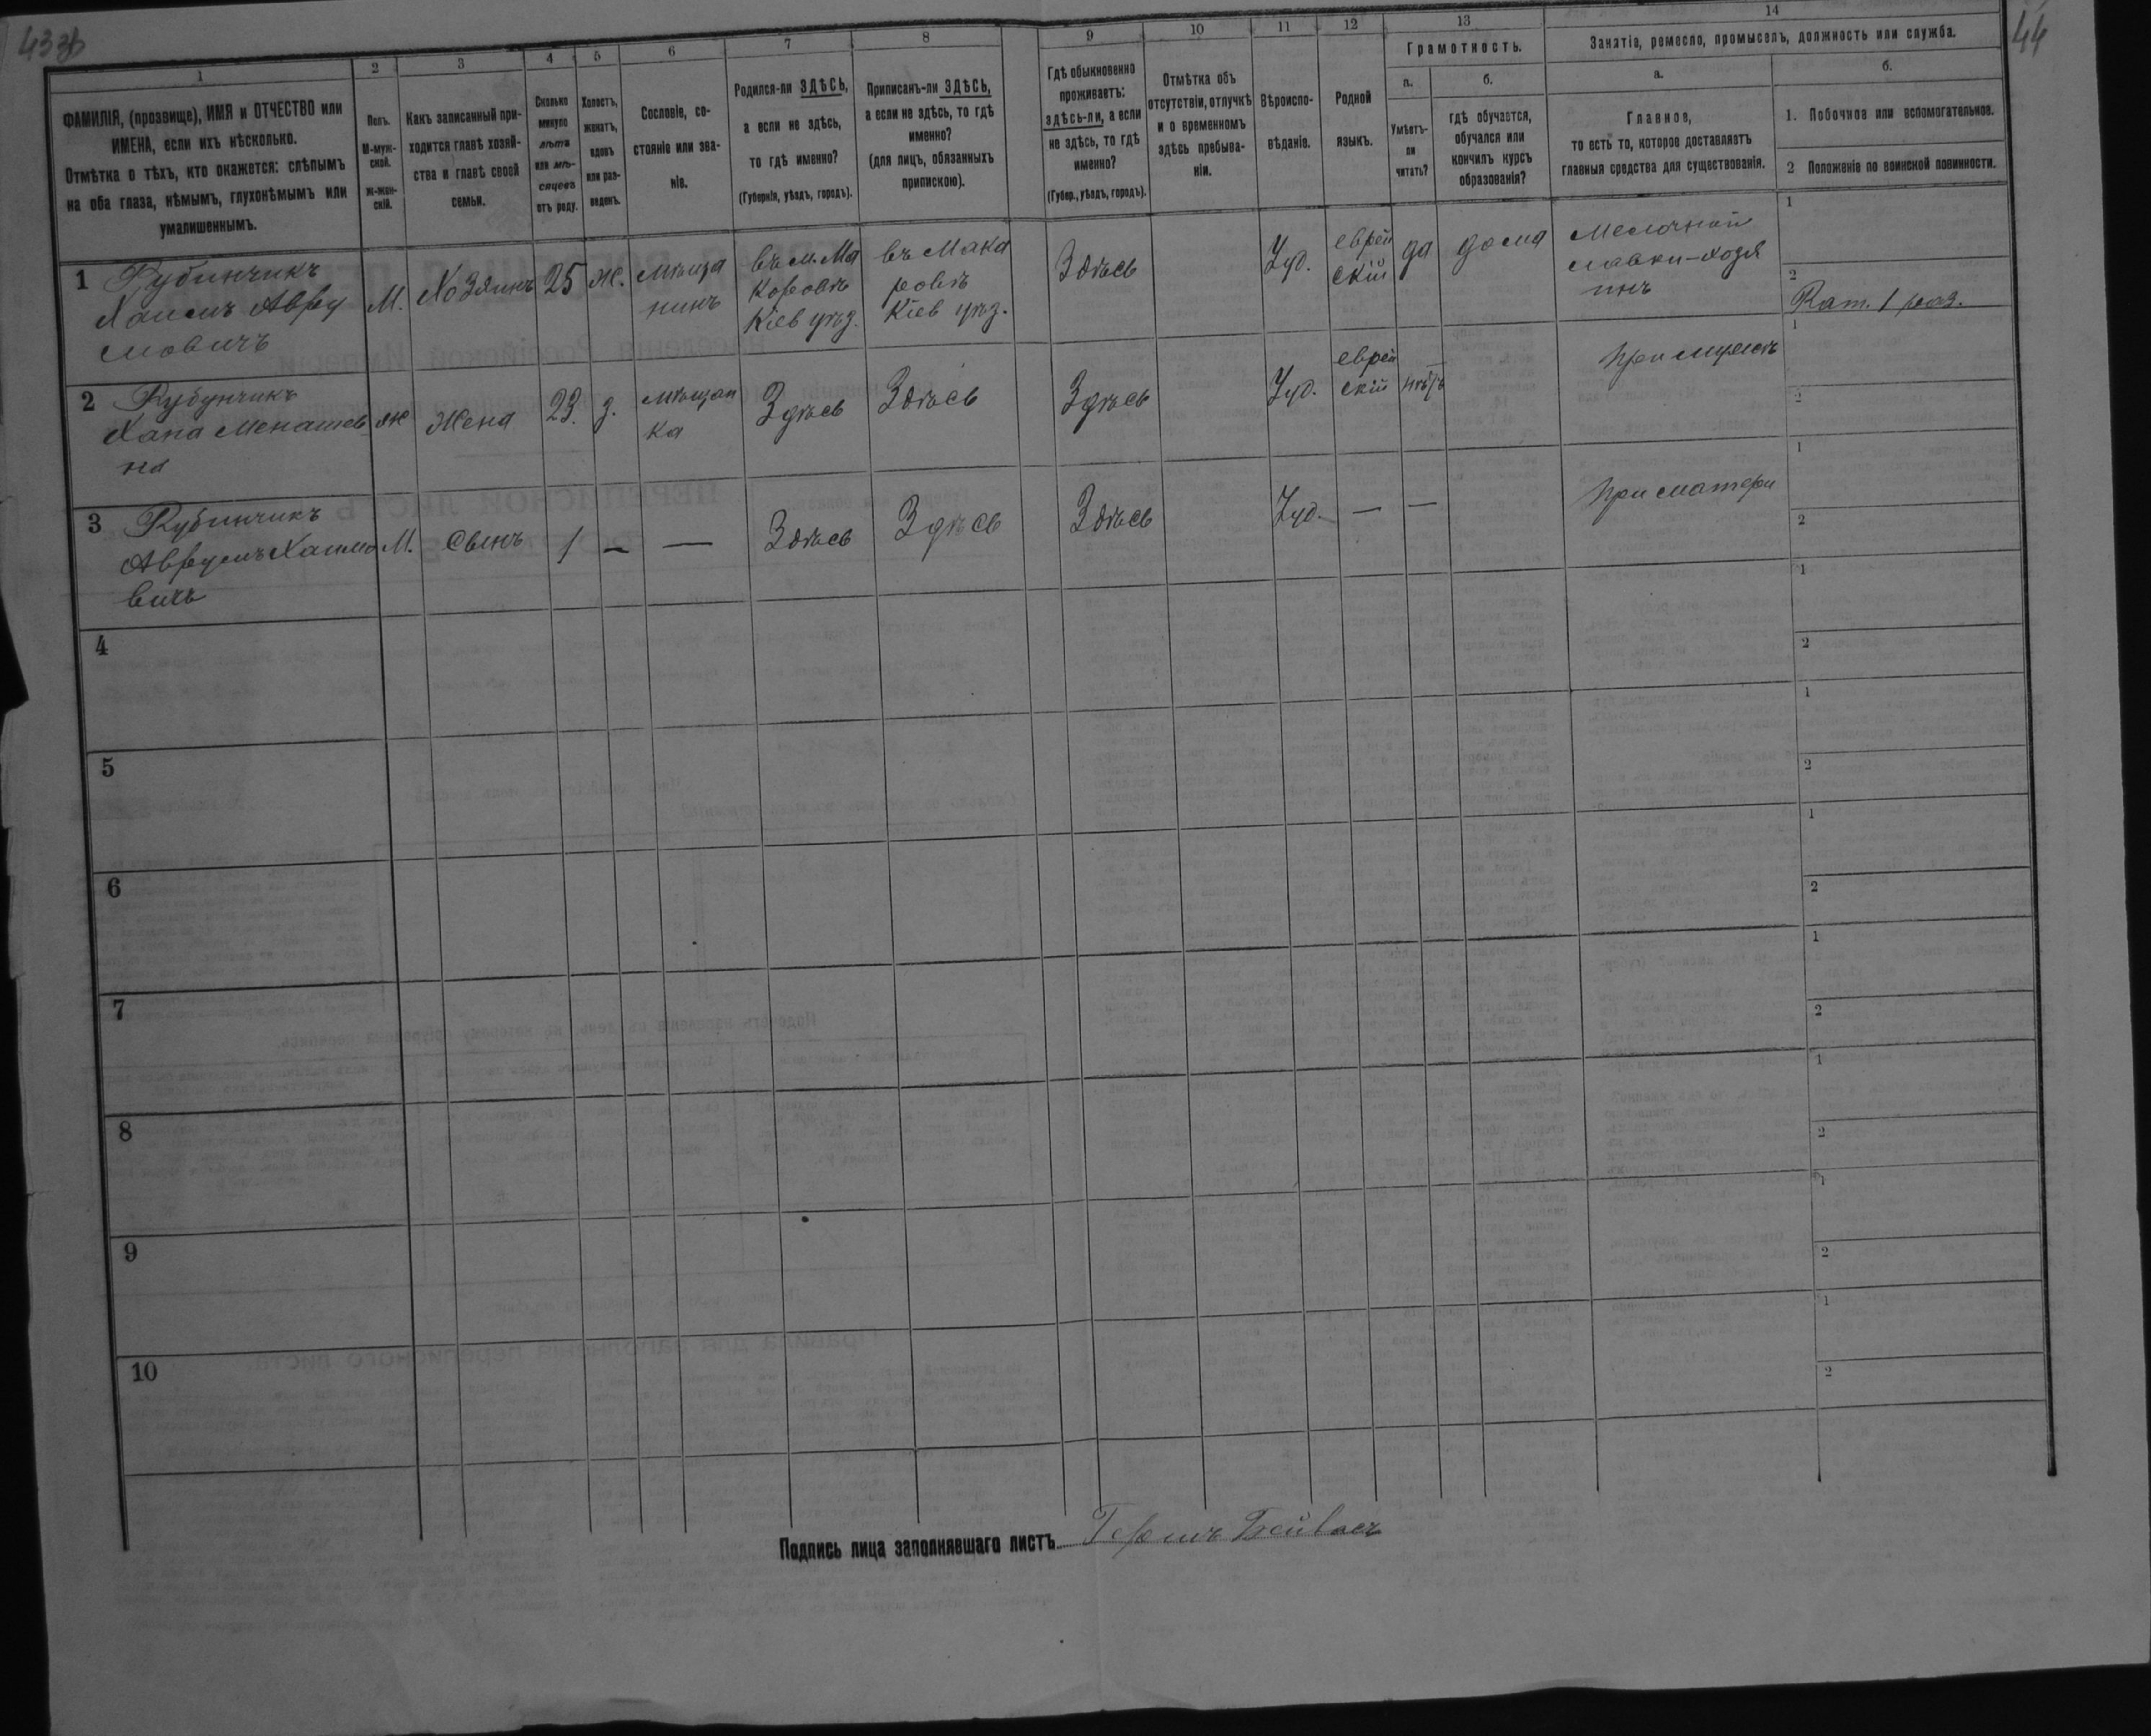 433б
44
1
2
3
4
5
6
7
8
9
10
11
12
13
14
ФАМИЛІЯ, (прозвище), ИМЯ и ОТЧЕСТВО или
ИМЕНА, если ихъ нѣсколько.
Отмѣтка о тѣхъ, кто окажется: слѣпымъ
на оба глаза, нѣмымъ, глухонѣмымъ или
умалишеннымъ.
Полъ.
М-муж-
ской.
Ж-жен-
скій.
Какъ записанный при-
ходится главѣ хозяй-
ства и главѣ своей
семьи.
Сколько
минуло
лѣтъ
или мѣ-
сяцевъ
отъ роду.
Холостъ,
женатъ,
вдовъ
или раз-
веденъ.
Сословіе, со-
стояніе или зва-
ніе.
Родился-ли ЗДѢСЬ,
а если не здѣсь,
то гдѣ именно?
(Губернія, уѣздъ, городъ).
Приписанъ-ли ЗДѢСЬ,
а если не здѣсь, то гдѣ
именно?
(для лицъ, обязанныхъ
припискою).
Гдѣ обыкновенно
проживаетъ:
здѣсь-ли, а если
не здѣсь, то гдѣ
именно?
(Губер., уѣздъ, городъ).
Отмѣтка объ
отсутствіи, отлучкѣ
и о временномъ
здѣсь пребыва-
ніи.
Вѣроиспо-
вѣданіе.
Родной
языкъ.
Грамотность.
а.
Умѣетъ-
ли
читать?
б.
гдѣ обучается,
обучался или
кончилъ курсъ
образованія?
Занятіе, ремесло, промыселъ, должность или служба.
а.
Главное,
то есть то, которое доставляетъ
главныя средства для существованія.
б.
1. Побочное или вспомогательное.
2 Положеніе по воинской повинности.
1 Рубинчикъ
Хаимъ Авру
мовичъ
М.
Хозяинъ
25
ж.
мѣща
нинъ
въ м. Ма
каровѣ
Кіев уѣз.
въ Мака
ровѣ
Кіев уѣз.
Здѣсь
Іуд.
еврей
скій
да
дома
Мелочной
лавки-хозя
инъ
1
2
Рат. 1 раз.
2 Рубунчикъ
Хана Менашев
на
ж
Жена
23.
з.
мѣщан
ка
Здѣсь
Здѣсь
Здѣсь
Іуд.
еврей
скій
нѣтъ
При мужѣ
1
2
3 Рубинчикъ
Аврумъ Хаимо
вичъ
М.
Сынъ
1
—
—
Здѣсь
Здѣсь
Здѣсь
Іуд.
—
—
При матери
1
2
4
1
2
5
1
2
6
1
2
7
1
2
8
1
2
9
1
2
10
1
2
Подпись лица заполнявшаго листъ